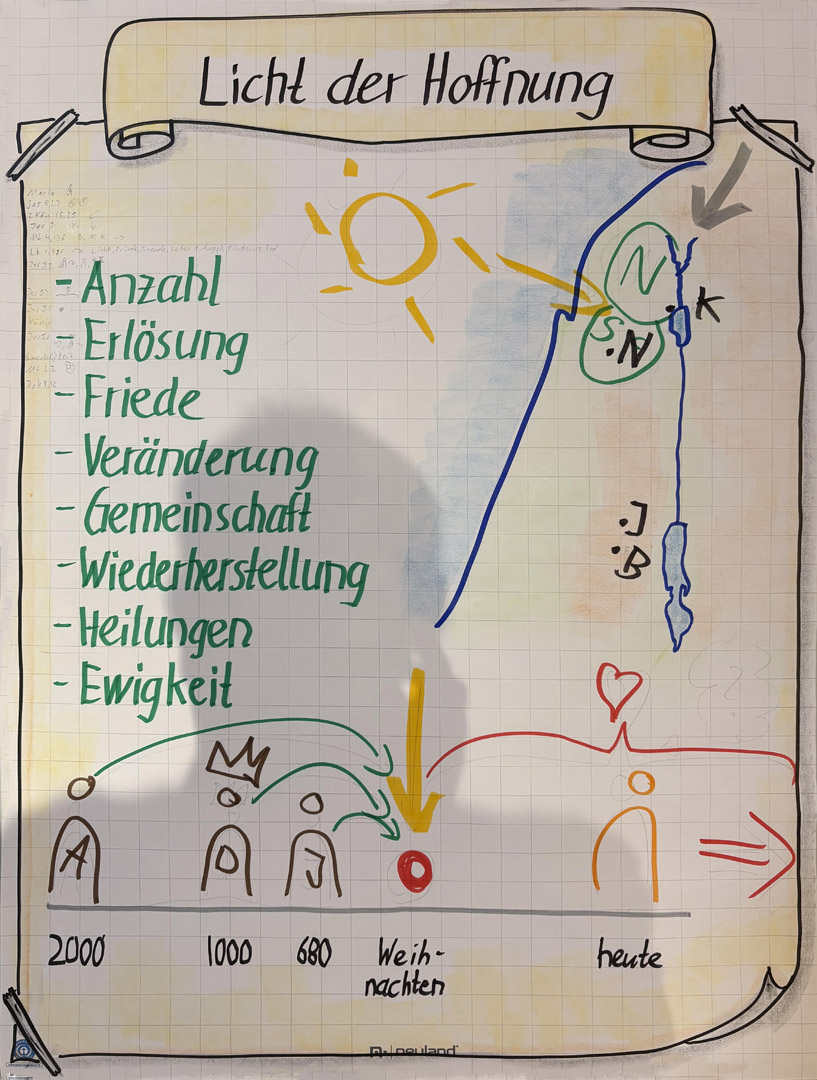 Licht der Hoffnung
- Anzahl
- Erlösung
- Friede
- Veränderung
- Gemeinschaft
- Wiederherstellung
- Heilungen
- Ewigkeit
N
K
S
N
J
B
A
D
J
2000
1000
680
Weih-
nachten
heute
neuland